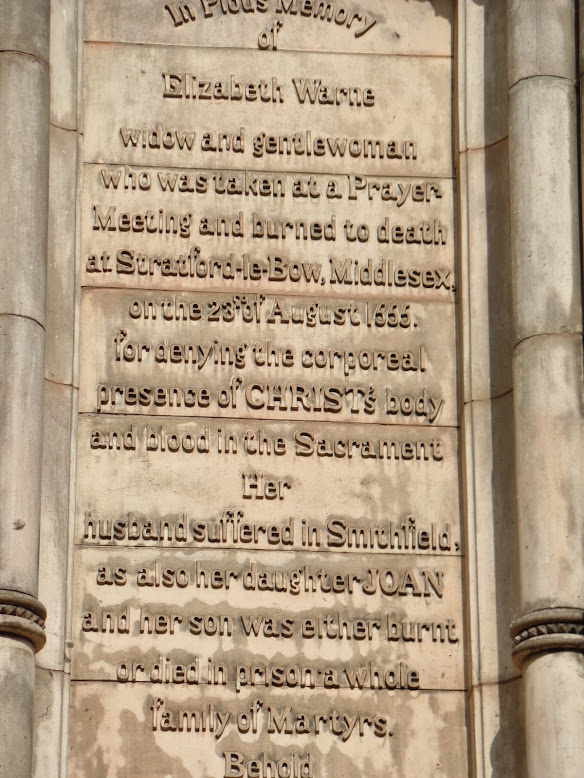 In Pious Memory
of
Elizabeth Warne
widow and gentlewoman
who was taken at a Prayer-
Meeting and burned to death
at Stratford-le-Bow, Middlesex,
on the 23rd of August 1555.
for denying the corporeal
presence of CHRIST's body
and blood in the Sacrament
Her
husband suffered in Smithfield,
as also her daughter JOAN
and her son was either burnt
or died in prison-a whole
family of Martyrs.
Behold